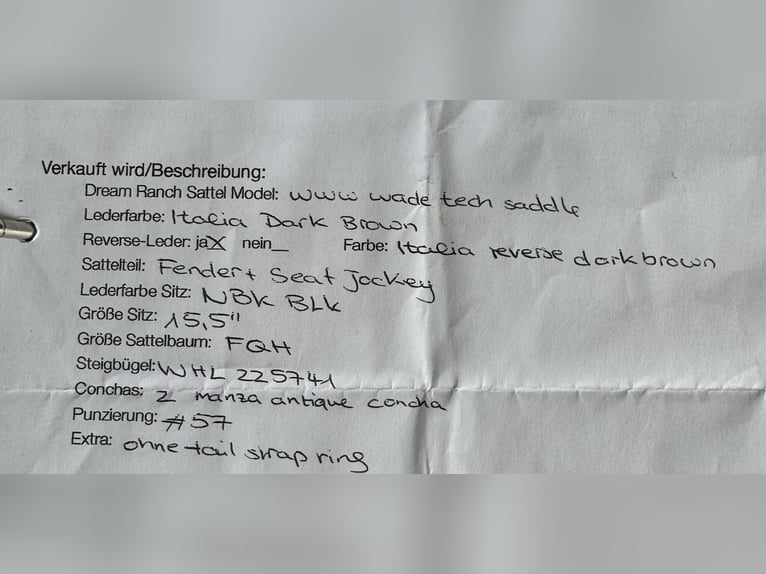 Verkauft wird/Beschreibung:
Dream Ranch Sattel Model: www wade tech saddle
Lederfarbe: Italia Dark Brown
Reverse-Leder: jaX nein_ Farbe: Italia reverse darkbrown
Sattelteil: Fender+ Seat Jockey
Lederfarbe Sitz: NBK BLK
Größe Sitz: 15,5"
Größe Sattelbaum: FQH
Steigbügel: WHL 225741
Conchas: 2 manza antique concha
Punzierung: #57
Extra: ohne tail strap ring